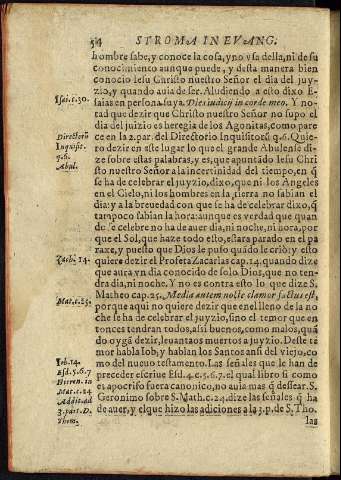 54 STROMA IN EVANG.
hombre sabe, y conoce la cosa, y no vsa della, ni de su
conocimiento aunque puede, y desta manera bien
conocio Iesu Christo nuestro Señor el dia del juy-
zio, y quando auia de ser. Aludiendo a esto dixo E-
saias en persona suya. Dies iudicij in corde meo. Y no-
tad que dezir que Christo nuestro Señor no supo el
dia del juizio es heregia de los Agonitas, como pare
ce en la 2. par. del Directorio Inquisitoru q. 6. Quie-
ro dezir en este lugar lo que el grande Abulense di-
ze sobre estas palabras, y es, que apuntādo Iesu Chri
sto nuestro Señor a la incertinidad del tiempo, en q̄
se ha de celebrar el juyzio, dixo, que ni los Angeles
en el Cielo, ni los hombres en la tierra no sabian el
dia: y a la breuedad con que se ha de celebrar dixo, q̄
tampoco sabian la hora: aunque es verdad que quan
do se celebre no ha de auer dia, ni noche, ni hora, por
que el Sol, que haze todo esto, estara parado en el pa
raxe, y puesto que Dios le puso quādo le criò; y esto
quiere dezir el Profeta Zacarias cap. 14. quando dize
que aura vn dia conocido de solo Dios, que no ten-
dra dia, ni noche. Y no es contra esto lo que dize S.
Matheo cap. 25. Media autem nocte clamor factus est,
porque aqui no quiere dezir que en el lleno de la no
che se ha de celebrar el juyzio, sino el temor que en
tonces tendran todos, assi buenos, como malos, quā
do oygā dezir, leuantaos muertos a juyzio. Deste te
mor habla Iob, y hablan los Santos assi del viejo, co
mo del nueuo testamento. Las señales que le han de
preceder escriue Esd. 4. c. 5. 6. 7. el qual libro si como
es apocrifo fuera canonico, no auia mas q̄ dessear. S.
Geronimo sobre S. Math. c. 24. dize las señales q̄ ha
de auer, y el que hizo las adiciones a la 3. p. de S. Tho.
las
Isai. c. 30.
Directoru
Inquisit.
q. 6.
Abul.
Zach. 14.
Mat. c. 25.
Iob. 14.
Esd. 5. 6. 7
Hieron. in
Mat. c. 24
Addit. ad
3. part. D.
Thom.